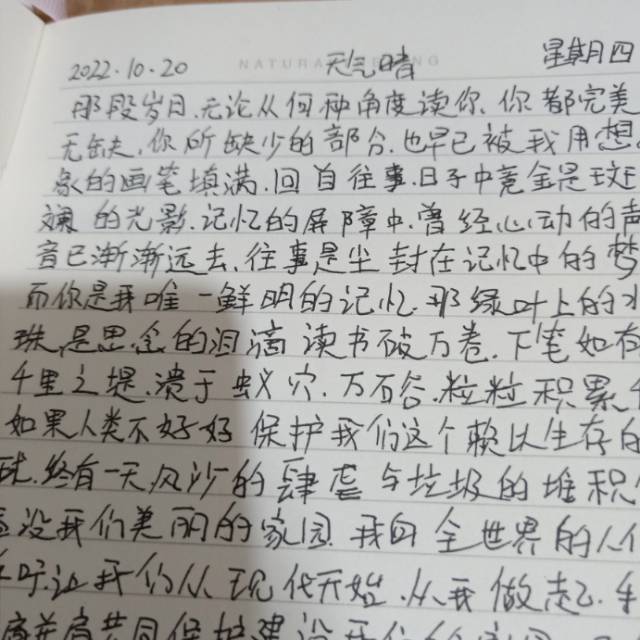 NATURA
2022.10.20 天气晴 星期四
那段岁月,无论从何种角度读你,你都完美
无缺,你所缺少的部分,也早已被我用想
象的画笔填满,回首往事,日子中竟全是斑
斓的光影,记忆的屏障中,曾经心动的声
音已渐渐远去,往事是尘封在记忆中的梦
而你是我唯一鲜明的记忆,那绿叶上的水
珠,是思念的泪滴 读书破万卷,下笔如有
千里之堤,溃于蚁穴,万石谷,粒粒积累
如果人类不好好保护我们这个赖以生存的
球,终有一天风沙的肆虐与垃圾的堆积
没我们美丽的家园 我向全世界的人
呼吁让我们从现代开始,从我做起,手